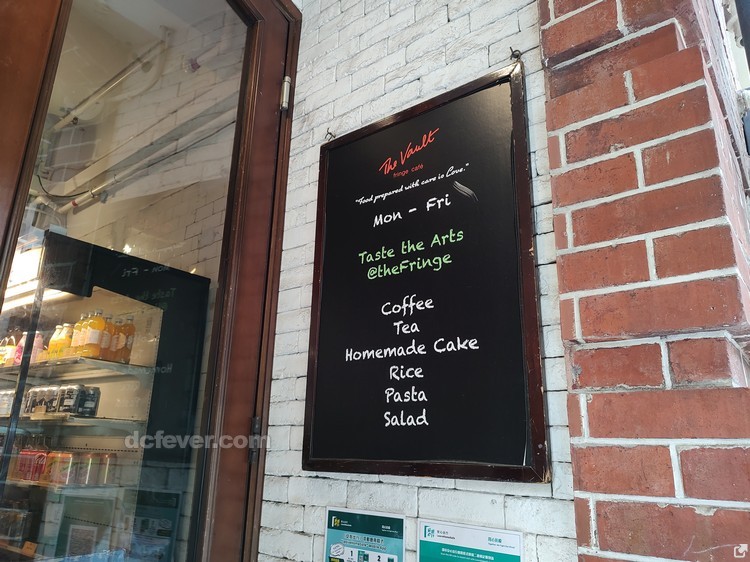 The Vault
fringe café
"Food prepared with care is Love."
Mon - Fri
Taste the Arts
@theFringe
Coffee
Tea
Homemade Cake
Rice
Pasta
Salad
dcfever.com